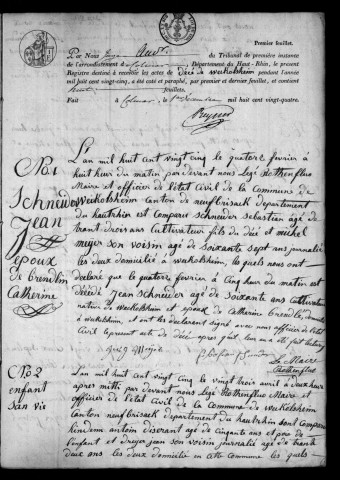 Premier feuillet.
Par Nous
du Tribunal de première instance
de l'arrondissement de Colmar, Département du Haut-Rhin, le présent
Registre destiné à recevoir les actes de Décé de Wekolsheim pendant l'année
mil huit cent vingt-cinq, a été coté et paraphé, par premier et dernier feuillet, et contient
huit feuillets.
Fait à Colmar le 1er Décembre mil huit cent vingt-quatre.
No 1
Schneider
Jean
epoux
de brendlin
Catherine
L'an mil huit cent vingt cinq le quatorze février à
huit heur du matin par devant nous Lege Rothenflue
Maire et officier de l'état Civil de la Commune de
Wekolsheim Canton de neufbrisack departement
du hautrhin est Comparus Schneider Sebastien agé de
trant drois ans Cultivateur fils du décé et michel
meyer son voisin agé de soixante sept ans journalié
les deux domicilié a Wekolsheim, les quels nous ont
declaré que le quatorze février à Cinq heur du matin est
Décédé Jean Schneider agé de soixante ans Cultivateur
native de Wekolsheim et epoux de Catherine brendlé, domicilié
a Wekolsheim, et ont les declarant signé avec nous officier de l'état
Civil le present acte de décé après
Le Maire
Rothenflue
No 2
enfant
San vie
L'an mil huit cent vingt cinq le vingt trois avril à deux heure
apres mitti par devant nous Lege Rothenflue Maire et
officier de l'état Civil de la Commune de Wekolsheim
Canton neufbrisack departement du hautrhin sont Comparus
kindem antoin diserant agé de Cinquante ans et
l'enfant et dreyer jean son voisin journalié agé de trant
deux ans les deux domicilié en cette Commune les quels